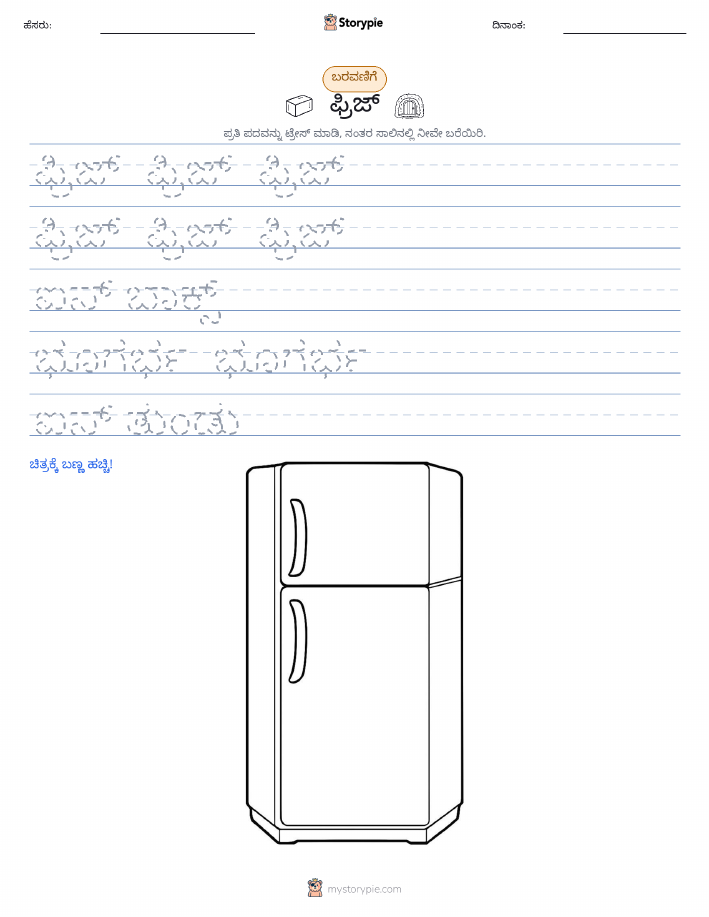 ಹೆಸರು: Storypie ದಿನಾಂಕ:
ಬರವಣಿಗೆ
ಫ್ರಿಜ್
ಪ್ರತಿ ಪದವನ್ನು ಟ್ರೇಸ್ ಮಾಡಿ, ನಂತರ ಸಾಲಿನಲ್ಲಿ ನೀವೇ ಬರೆಯಿರಿ.
ಫ್ರಿಜ್ ಫ್ರಿಜ್ ಫ್ರಿಜ್
ಫ್ರಿಜ್ ಫ್ರಿಜ್ ಫ್ರಿಜ್
ಐಸ್ ಬಾಕ್ಸ್
ಭೂಗರ್ಭ ಭೂಗರ್ಭ
ಐಸ್ ತುಂಡು
ಚಿತ್ರಕ್ಕೆ ಬಣ್ಣ ಹಚ್ಚಿ!
mystorypie.com